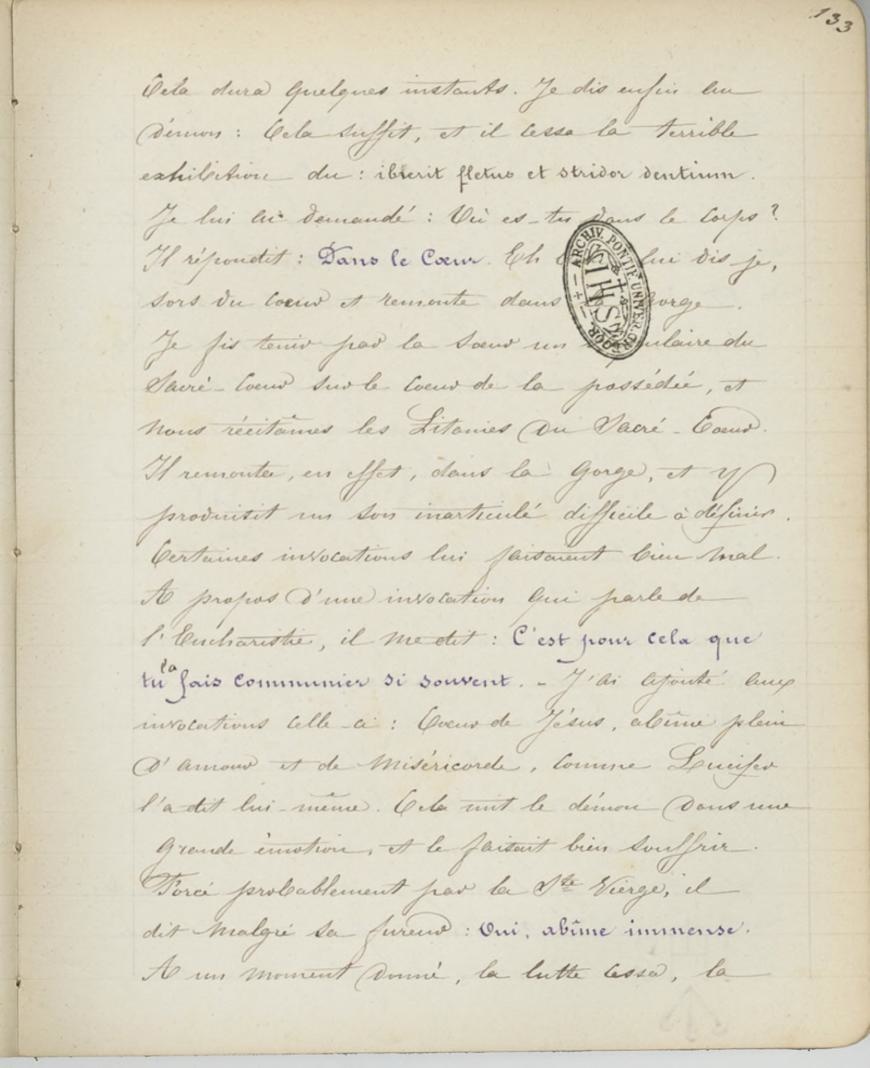 133
Cela dura quelques instants. Je dis enfin au
démon : Cela suffit, et il cessa la terrible
exhibition du : ibi erit fletus et stridor dentium.
Je lui ai demandé : Où es-tu dans le corps ?
Il répondit : Dans le Cœur. Eh lui dis je,
sors du cœur et remonte dans gorge.
Je fis tenir par la sœur un scapulaire du
Sacré-Cœur sur le cœur de la possédée, et
nous récitâmes les Litanies du Sacré-Cœur.
Il remonta, en effet, dans la gorge, et y
produisit un son inarticulé difficile à définir.
Certaines invocations lui faisaient bien mal.
A propos d'une invocation qui parle de
l'Eucharistie, il me dit : C'est pour cela que
tu la fais communier si souvent. - J'ai ajouté aux
invocations celle-ci : Cœur de Jésus, abîme plein
d'amour et de miséricorde, comme Lucifer
l'a dit lui-même. Cela mit le démon dans une
grande émotion, et le faisait bien souffrir.
Forcé probablement par la Ste Vierge, il
dit malgré sa fureur : Oui, abîme immense.
A un moment donné, la lutte cessa, la
ARCHIV. PONTIF. UNIVER. GREGOR.
IHS